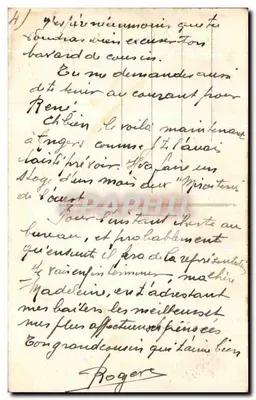 4/
j'espère néanmoins que tu
voudras bien excuser ton
bavard de cousin.
Tu me demandes aussi
de te tenir au courant pour
René.
Eh bien, le voilà maintenant
à Angers comme je te l'avais
laissé prévoir. Il va faire un
stage d'un mois aux "
de l'ouest
Pour l'instant il reste au
bureau, et probablement
qu'ensuite il fera de la représentation
Je vais enfin terminer, ma chère
Madeleine, en t'adressant
mes baisers les meilleurs et
mes plus affectueuses pensées
Ton grand cousin qui t'aime bien
Roger